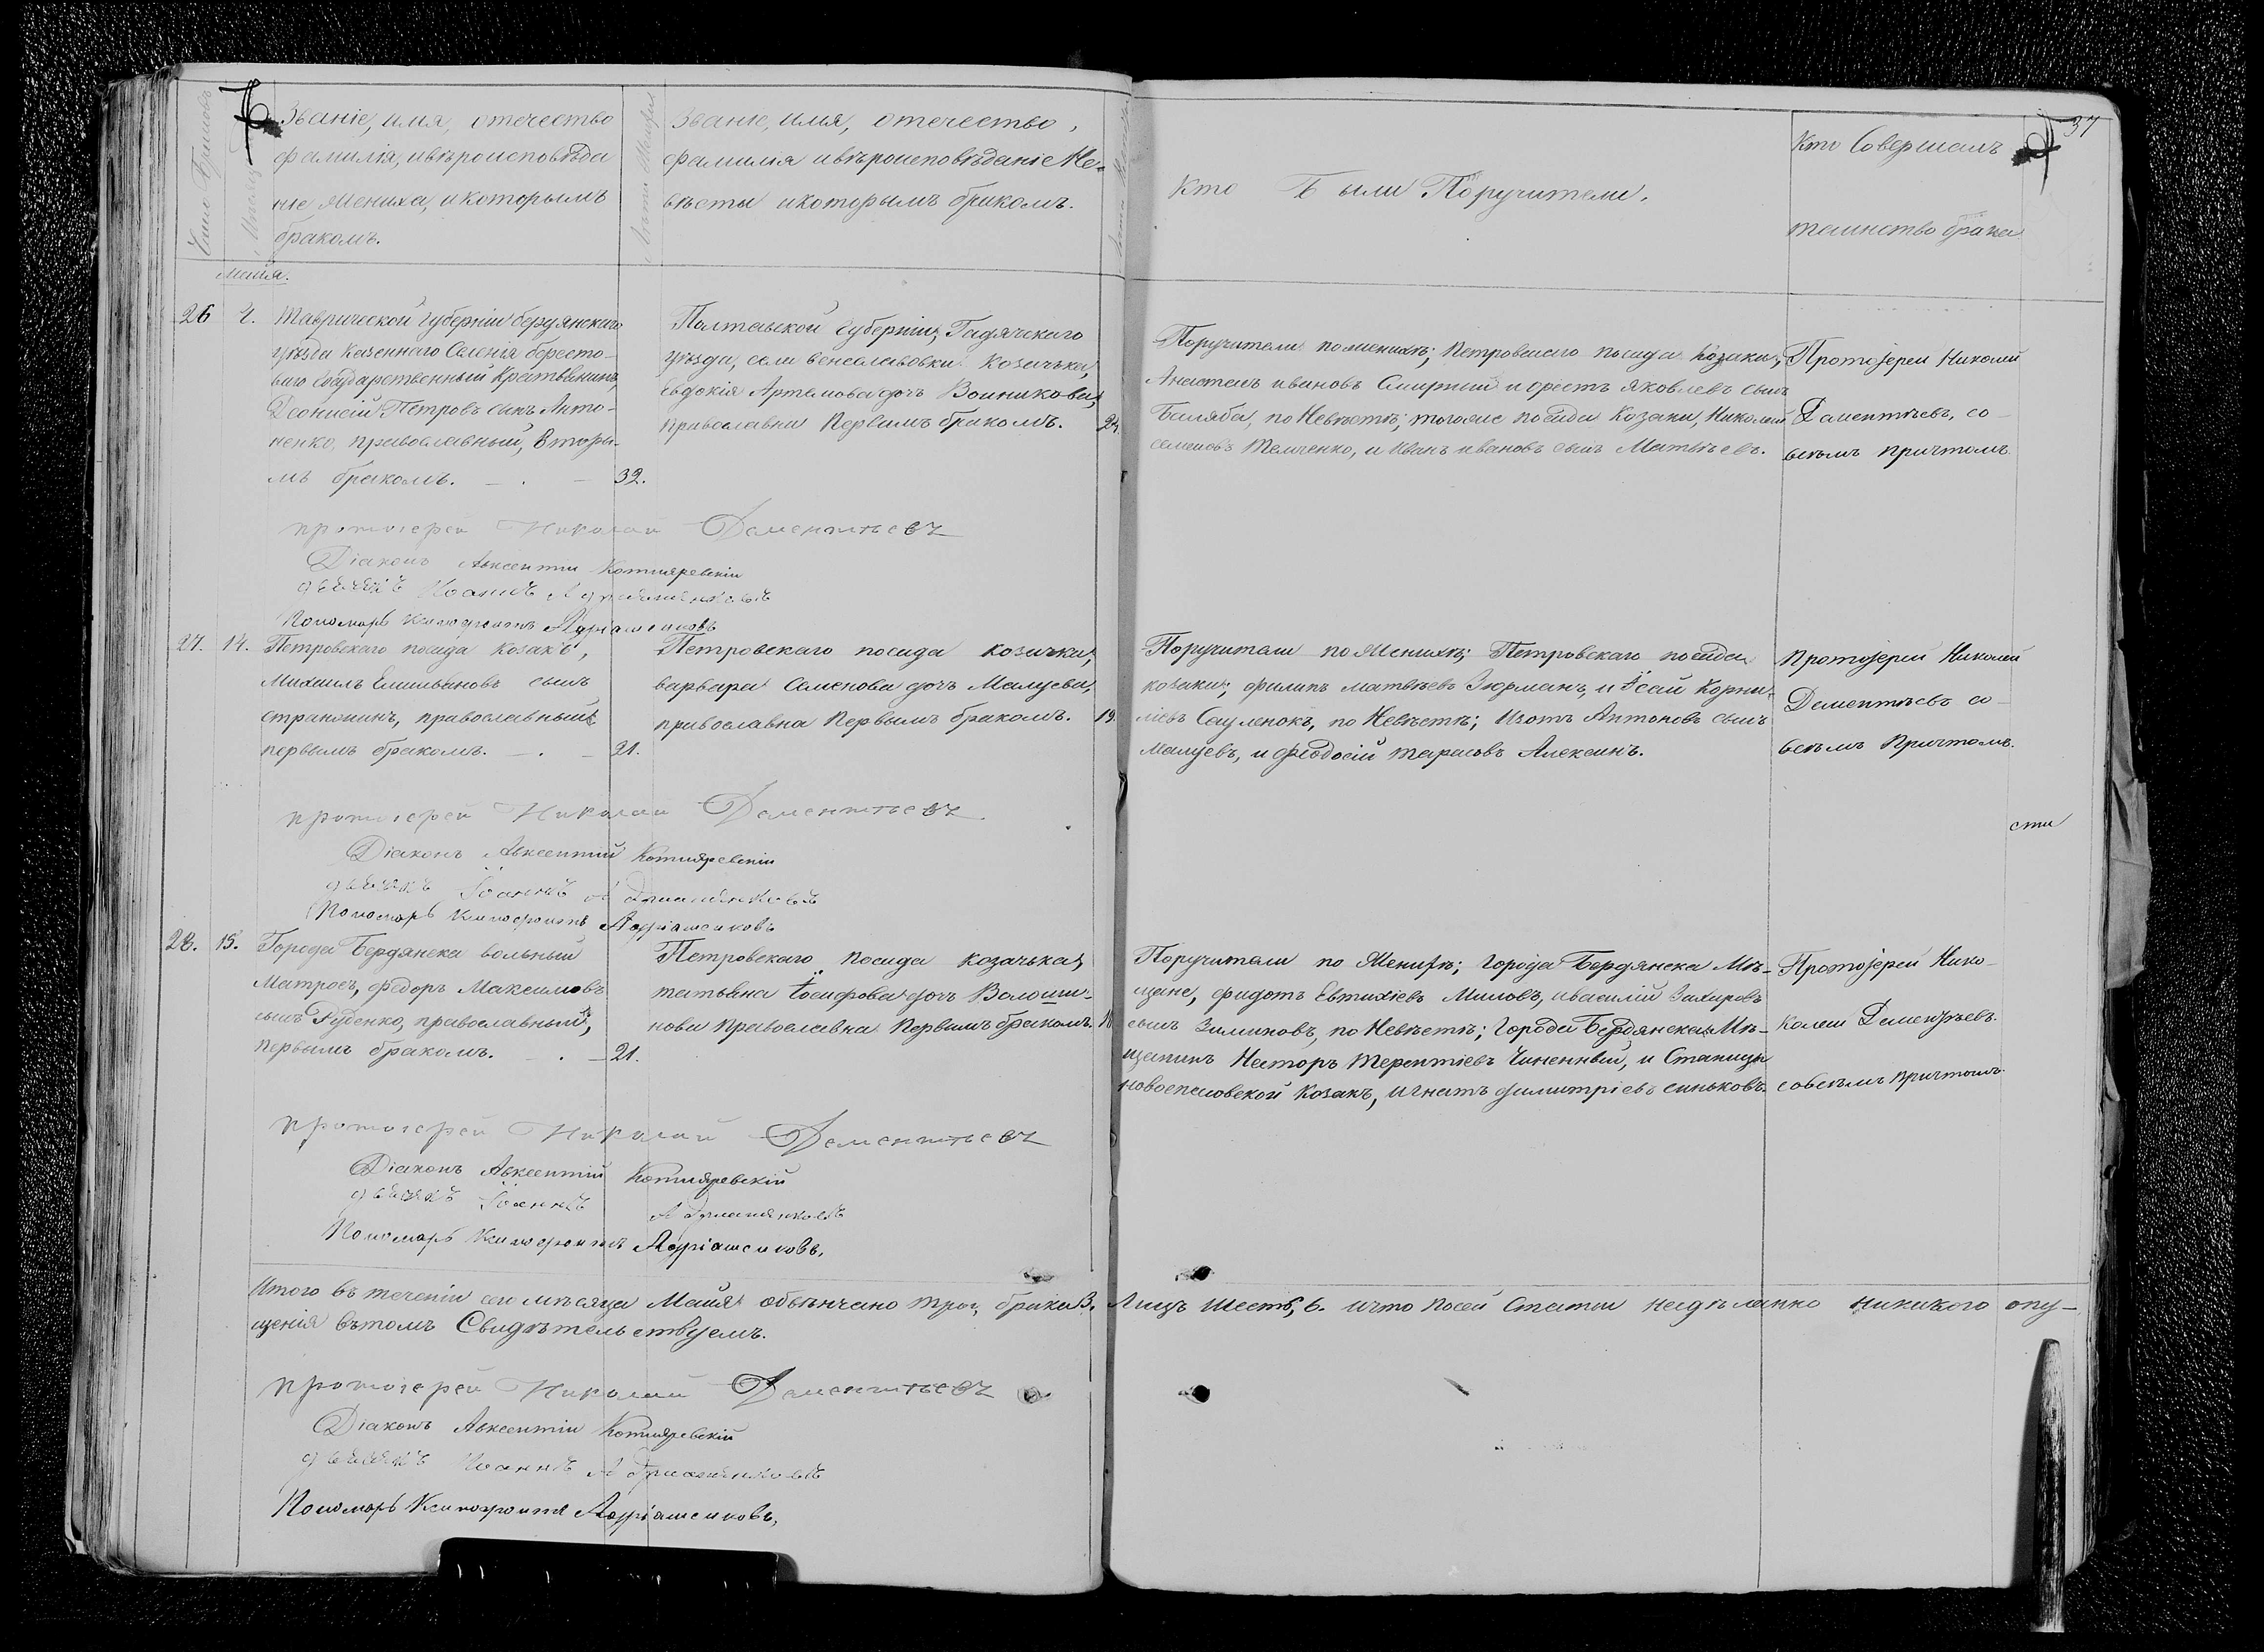 37
Число Браковъ
Звание, имя, отечество
фамилія, ивѣроисповѣда
ніе Жениха, икоторымъ
бракомъ.
Лѣта Жениха
Званіе, имя, отечество,
фамилія ивѣроисповѣданіе Не-
вѣсты икоторымъ бракомъ.
Кто Были Поручители.
Кто Совершалъ
таинство брака
Маія.
26 2. Таврической губерніи бердянскаго
уѣзда Казеннаго Селенія бересто-
ваго Государственный Крестьянинъ,
Деонисій Петровъ сынъ Анто-
ненко, православный, вторы-
мъ бракомъ. 32.
Полтавской губерніи, Гадячскаго
уѣзда, села венеславовки Козачька,
евдокія Артемова дочъ Воиникова,
православна Первымъ бракомъ. 24.
Поручители поженихѣ; Петровскаго посада козаки,
Анастасъ ивановъ Смирний и орестъ Яковлевъ сынъ
Баляба, по Невѣстѣ; тогоже посада Козаки, Николай
семеновъ Темченко, и Иванъ ивановъ сынъ Матвѣевъ.
Протоіерей Николай
Дементьевъ, со
всѣмъ причтомъ
протоіерей Николай Дементьевъ
Діаконъ Авксентий Котляревскій
дьячекъ Иоаннъ Адріаненковъ
Пономаръ Ксинофонтъ Адріаненковъ
27. 14. Петровскаго посада Козакъ,
Михаилъ Емильяновъ сынъ
странжинъ, православный
первымъ бракомъ. 21.
Петровскаго посада козачка,
варвара Семенова дочъ Малуева,
православна Первымъ бракомъ. 19.
Поручители по Женихѣ; Петровскаго посада
козаки; филипъ матвѣевъ Зюрманъ, и Ісай Корни-
ліевъ Сауленокъ, по Невѣстѣ; Изотъ Антоновъ сынъ
Малуевъ, и Феодосій тарасовъ Алексинъ.
Протоіерей Николай
Дементьевъ со
всѣмъ Причтомъ.
протоіерей Николай Дементьевъ
сти
Діаконъ Авксентій Котляревскій
дьячекъ Іоаннъ Адріаненковъ
Пономаръ Ксинофонтъ Адріаненковъ
28. 15. Города Бердянска вольный
Матросъ, федоръ Максимовъ
сынъ Руденко, православный,
первымъ бракомъ. 21.
Петровскаго посада козачька,
татьяна Іосифова дочъ Волоши-
нова православна Первымъ бракомъ.
Поручители по Женихѣ; города Бердянска Мѣ-
щане, фидотъ Евтихіевъ Миловъ, ивасилій Захаровъ
сынъ Зиминовъ, по Невѣстѣ; города Бердянска Мѣ-
щанинъ Несторъ Терентіевъ Чиненный, и Станицы
новоспасовской Козакъ, Игнатъ димитріевъ синьковъ.
Протоіерей Нико-
колай Дементьевъ.
совсѣмъ причтомъ.
протоіерей Николай Дементьевъ
Діаконъ Авксентій Котляревскій
дьячекъ Іоаннъ Адріаненковъ
Пономаръ Ксинофонтъ Адріаненковъ.
Итого въ теченіи сего мѣсяца Маія обвѣнчано три, брака 3. Лицъ шесть, 6. ичто посей статьи несдѣланно никакого опу-
щенія вътомъ Свидѣтельствуемъ.
протоіерей Николай Дементьевъ
Діаконъ Авксентій Котляревскій
дьячекъ Иоаннъ Адріаненковъ
Пономаръ Ксинофонтъ Адріаненковъ.